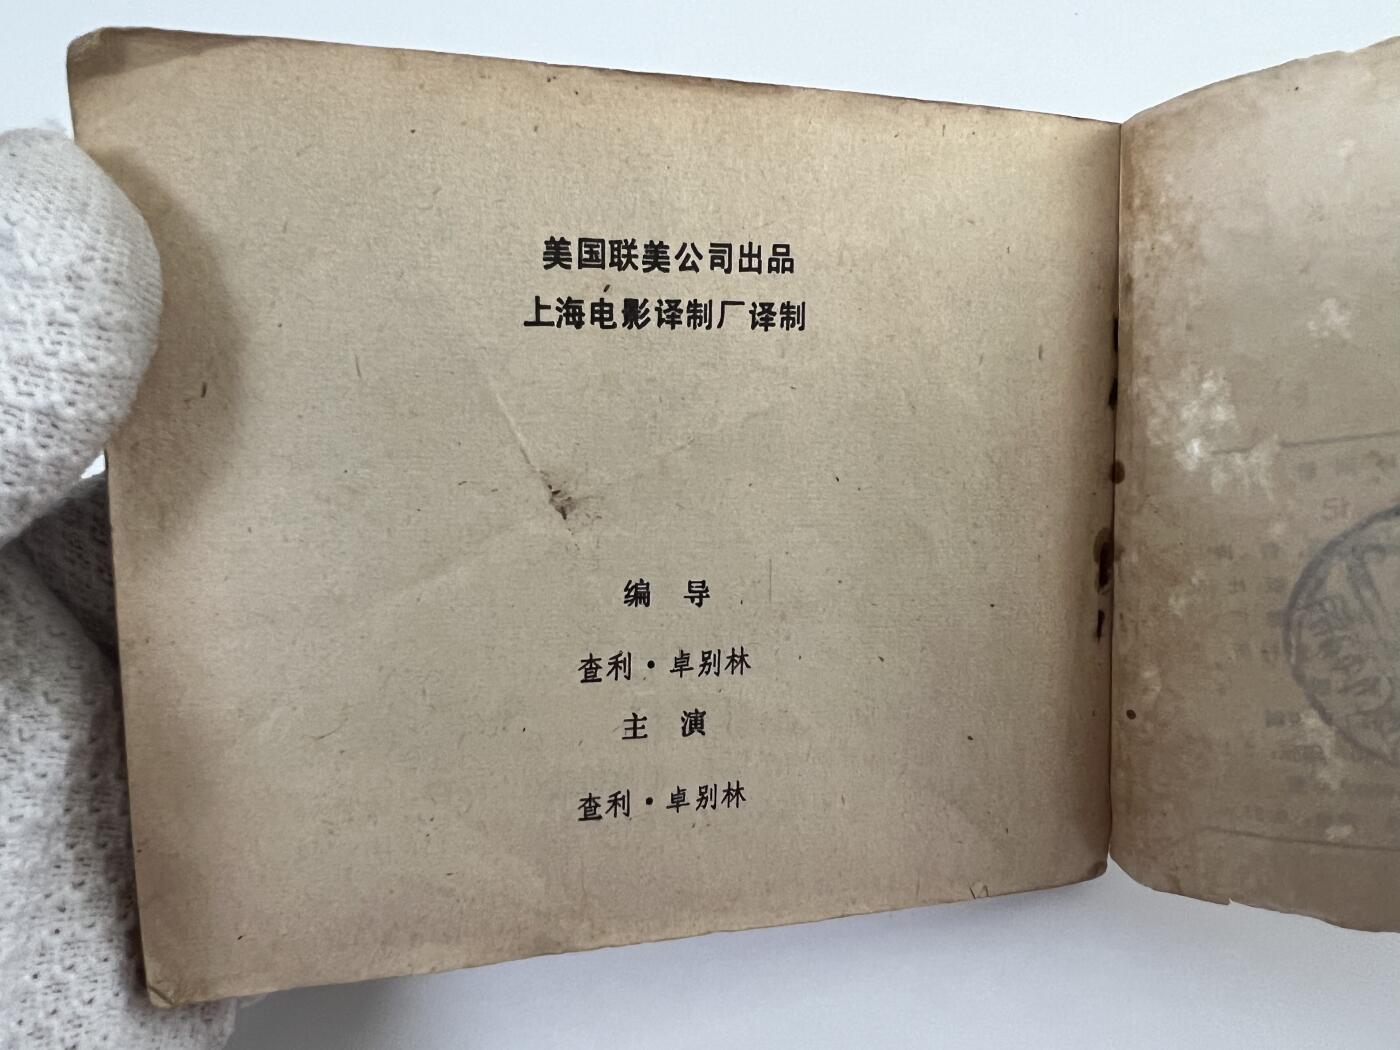 美国联美公司出品
上海电影译制厂译制
编 导
查利·卓别林
主 演
查利·卓别林